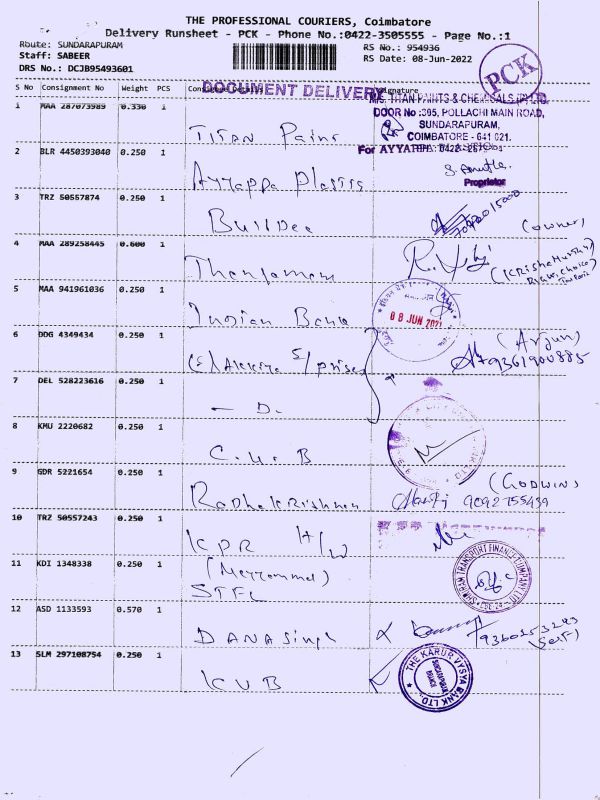 THE PROFESSIONAL COURIERS, Coimbatore
Delivery Runsheet - PCK - Phone No.:0422-3505555 - Page No.:1
Route: SUNDARAPURAM
Staff: SABEER
DRS No.: DCJB95493601
RS No.: 954936
RS Date: 08-Jun-2022
PCK
S No Consignment No Weight PCS Consignee Details Signature
DOCUMENT DELIVERY
1 MAA 287073989 0.330 1
M/s. TITAN PAINTS & CHEMICALS (P) LTD.
DOOR No :395, POLLACHI MAIN ROAD,
SUNDARAPURAM,
COIMBATORE - 641 021.
TITAN Pains
2 BLR 4450393040 0.250 1
For AYYAPPA
Proprietor
Ayyappa Plastis
3 TRZ 50557874 0.250 1
Builder
(owner)
4 MAA 289258445 0.600 1
5 MAA 941961036 0.250 1
Indian Bank
08 JUN 2021
6 DDG 4349434 0.250 1
(Arjun)
9361900885
7 DEL 528223616 0.250 1
— D.
8 KMU 2220682 0.250 1
C.U.B
9 GDR 5221654 0.250 1
Radhakrishnan
(GODWIN)
9092755439
10 TRZ 50557243 0.250 1
KPR H/W
11 KDI 1348338 0.250 1
STFC
SHRIRAM TRANSPORT FINANCE COMPANY LTD
12 ASD 1133593 0.570 1
DANA Singh
9360253293
(Self)
13 SLM 297108754 0.250 1
KVB
THE KARUR VYSYA BANK LTD.
SUNDARAPURAM
BRANCH